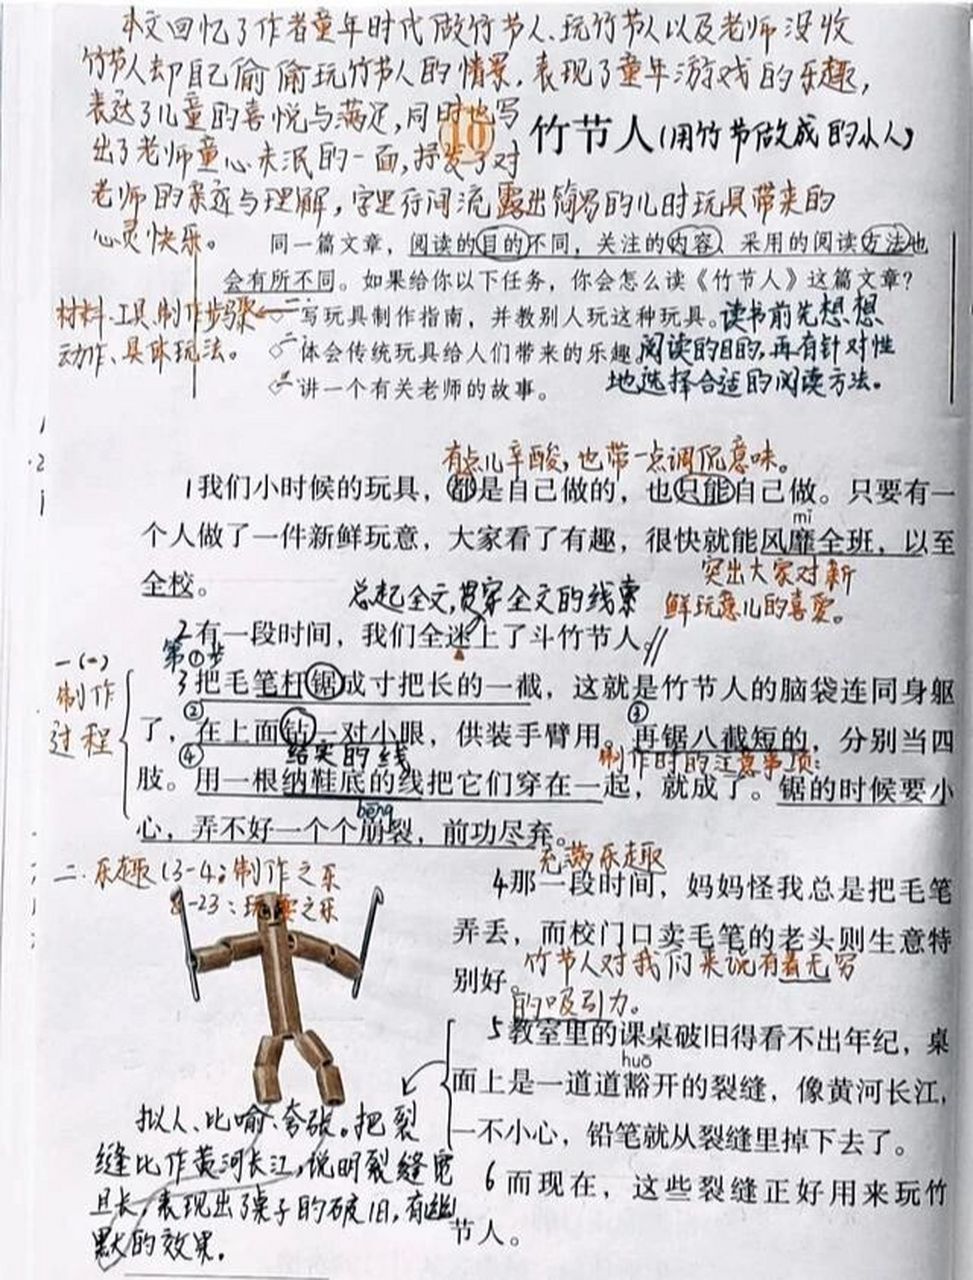 本文回忆了作者童年时代做竹节人、玩竹节人以及老师没收
竹节人却自己偷偷玩竹节人的情景，表现了童年游戏的乐趣，
表达了儿童的喜悦与满足，同时也写
出了老师童心未泯的一面，抒发了对
老师的亲近与理解，字里行间流露出简易的儿时玩具带来的
心灵快乐。
10 竹节人(用竹节做成的小人)
同一篇文章，阅读的目的不同，关注的内容、采用的阅读方法也
会有所不同。如果给你以下任务，你会怎么读《竹节人》这篇文章？
材料、工具、制作步骤
动作、具体玩法。
一 写玩具制作指南，并教别人玩这种玩具。
二 体会传统玩具给人们带来的乐趣
三 讲一个有关老师的故事。
读书前先想想
阅读的目的，再有针对性
地选择合适的阅读方法。
有点儿辛酸，也带一点调侃意味。
1我们小时候的玩具，都是自己做的，也只能自己做。只要有一
mǐ
个人做了一件新鲜玩意，大家看了有趣，很快就能风靡全班，以至
全校。
突出大家对新
鲜玩意儿的喜爱。
总起全文，贯穿全文的线索
2有一段时间，我们全迷上了斗竹节人。//
第①步
一(一)
制作
过程
3把毛笔杆锯成寸把长的一截，这就是竹节人的脑袋连同身躯
② ③
了，在上面钻一对小眼，供装手臂用。再锯八截短的，分别当四
④ 结实的线 制作时的注意事项：
肢。用一根纳鞋底的线把它们穿在一起，就成了。锯的时候要小
bēng
心，弄不好一个个崩裂，前功尽弃。
二.乐趣(3-4：制作之乐
8-23：玩耍之乐
充满乐趣
4那一段时间，妈妈怪我总是把毛笔
弄丢，而校门口卖毛笔的老头则生意特
别好。
竹节人对我们来说有着无穷
的吸引力。
5教室里的课桌破旧得看不出年纪，桌
huō
面上是一道道豁开的裂缝，像黄河长江，
一不小心，铅笔就从裂缝里掉下去了。
拟人、比喻、夸张。把裂
缝比作黄河长江，说明裂缝宽
且长，表现出了桌子的破旧，有幽
默的效果。
6而现在，这些裂缝正好用来玩竹
节人。